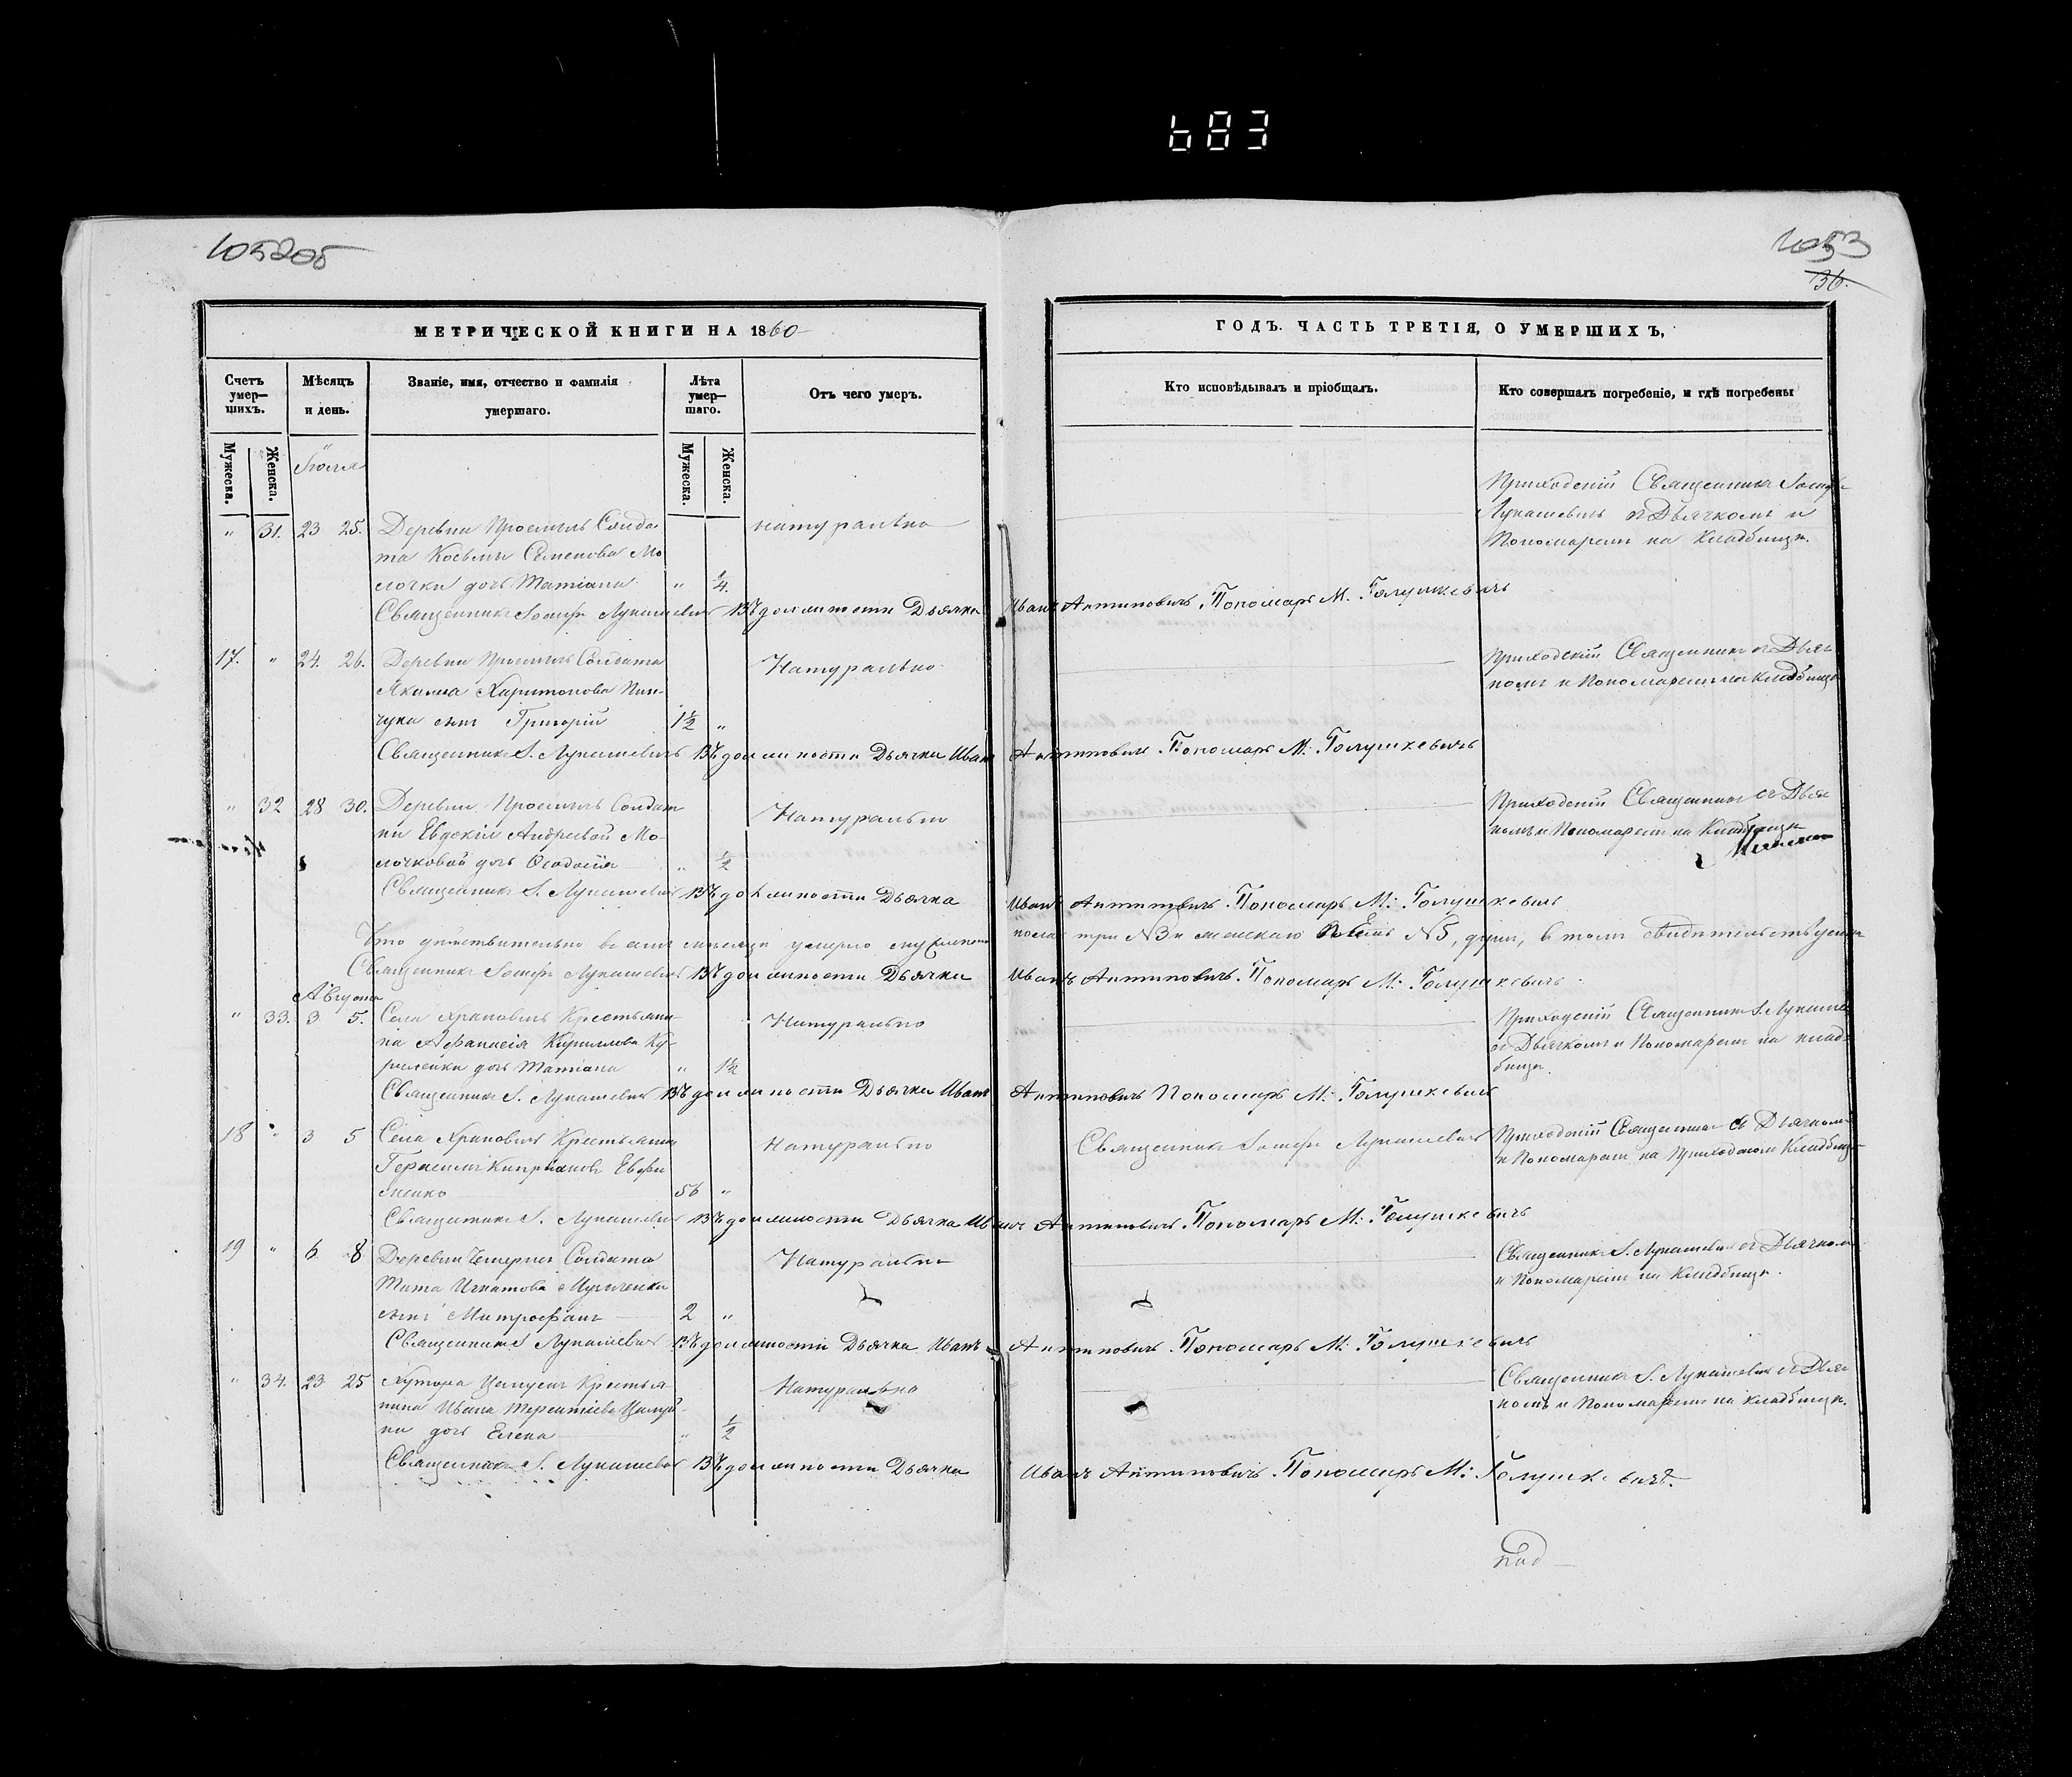 683
105205
1053
36.
МЕТРИЧЕСКОЙ КНИГИ НА 1860
ГОДЪ. ЧАСТЬ ТРЕТІЯ, О УМЕРШИХЪ,
Счетъ умер—шихъ.
Мѣсяцъ и день.
Званіе, имя, отчество и фамилія умершаго.
Лѣта умер—шаго.
Отъ чего умеръ.
Кто исповѣдывалъ и пріобщалъ.
Кто совершалъ погребеніе, и гдѣ погребены
Мужеска.
Женска.
Мужеска.
Женска.
Іюля
" 31. 23 25. Деревни Солда
та Косьмы Семенова Мо
лочки дочь Татіана " 1/4.
натурально
Приходскій Священникъ Іосифъ
Лукашевичъ съ Дьячкомъ и
Пономаремъ на Кладбищѣ.
Священникъ Іосифъ Лукашевичъ Въ должности Дьячка Иванъ Антиповичъ. Пономарь М. Голушкевичъ
17. " 24. 26. Деревни Солдата
Якима Харитонова Пин
чука сынъ Григорій 1½ "
Натурально
Приходскій Священникъ съ Дьяч
комъ и Пономаремъ на Кладбищѣ
Священникъ І. Лукашевичъ Въ должности Дьячка Иванъ Антиповичъ. Пономарь М. Голушкевичъ
" 32 28 30. Деревни Солдат
ки Евдокіи Андреевой Мо-
лочковой дочь Ѳеодосія " 1/2
Натурально
Приходскій Священникъ съ Дьяч
комъ и Пономаремъ на Кладбищѣ
Священникъ І. Лукашевичъ Въ должности Дьячка Иванъ Антиповичъ. Пономарь М. Голушкевичъ
Что дѣйствительно въ семъ мѣсяцѣ умерло три №3 и женскаго пять №5, душъ, въ томъ свидѣтельствуемъ
Священникъ Іосифъ Лукашевичъ Въ должности Дьячка Иванъ Антиповичъ. Пономарь М. Голушкевичъ.
Августа
" 33. 3 5. Села Храповичъ Крестьяни-
на Аѳанасія Кириллова Ку-
дочь Татіана " 1½
Натурально
Приходскій Священникъ І. Лукашев
съ Дьячкомъ и Пономаремъ на клад-
бищѣ.
Священникъ І. Лукашевичъ Въ должности Дьячка Иванъ Антиповичъ Пономарь М. Голушкевичъ
18 " 3 5 Села Храповичъ Крестьянинъ
Кипріановъ Евфи
менко 56 "
Натурально
Священникъ Іосифъ Лукашевичъ
Приходскій Священникъ съ Дьячкомъ
и Пономаремъ на Приходскомъ Кладбищѣ
Священникъ І. Лукашевичъ Въ должности Дьячка Иванъ Антиповичъ. Пономарь М. Голушкевичъ
19 " 6 8 Деревни Солдата
Тита Игнатова
сынъ Митрофанъ 2 "
Натурально
Священникъ І. Лукашевичъ съ Дьячкомъ
и Пономаремъ на Кладбищѣ.
Священникъ І. Лукашевичъ Въ должности Дьячка Иванъ Антиповичъ. Пономарь М. Голушкевичъ
" 34. 23 25 Хутора Крестья
нина Ивана Терентіева
дочь Елена " 1/2
Натурально
Священникъ І. Лукашевичъ съ Дьяч
комъ и Пономаремъ на кладбищѣ.
Священникъ І. Лукашевичъ Въ должности Дьячка Иванъ Антиповичъ. Пономарь М. Голушкевичъ.